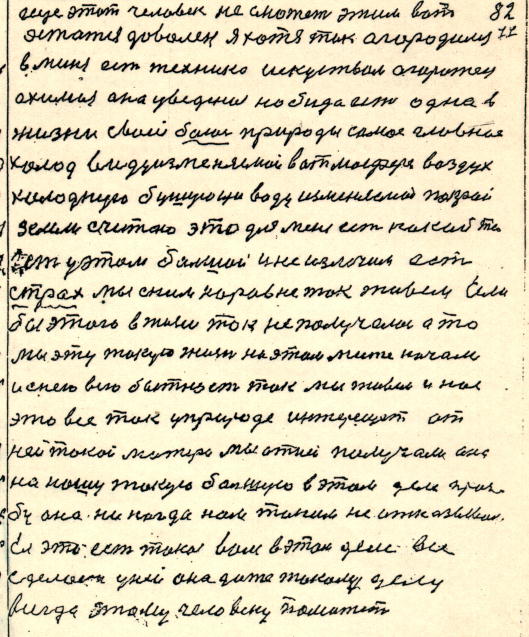 еще этот человек не сможет этим вот 82
остатся доволен я хотя ток огородился 11
в миня ест техника искуством
она уведена но бида ест одна в
жизни своей болш природы самое главное
холод видуизменяемой в атмосфере воздух
холодную бушующи воду изменяемой
земли считаю это для меня ест какой то
ест у этом балшой и не излочим ест
страх мы с ним наровне ток живем Если
бы этого в жизи ток не получалос а то
мы эту такую жизн на этом мисте начали
и с нею всю бытност ток мы живем и нас
это все ток у природе интересует от
ней такой матере мы от ней получали она
на нашу такую балшую в этом деле
бу она ни когда нам таким не отказывала
Ей это ест тоже вам в этом деле все
сделоеш у ней она дажа такому делу
всегда этаму человеку поможет